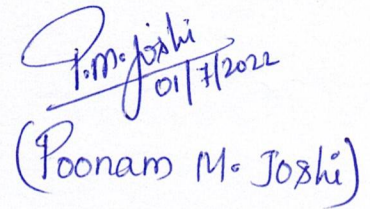 P.M.Joshi
01/7/2022
(Poonam M. Joshi)